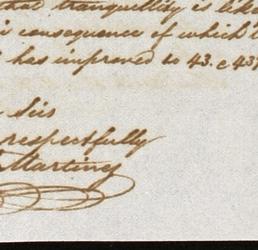 that tranquillity is lik
consequence of which
has improved to 43. c 43
Sirs
respectfully
Martiney